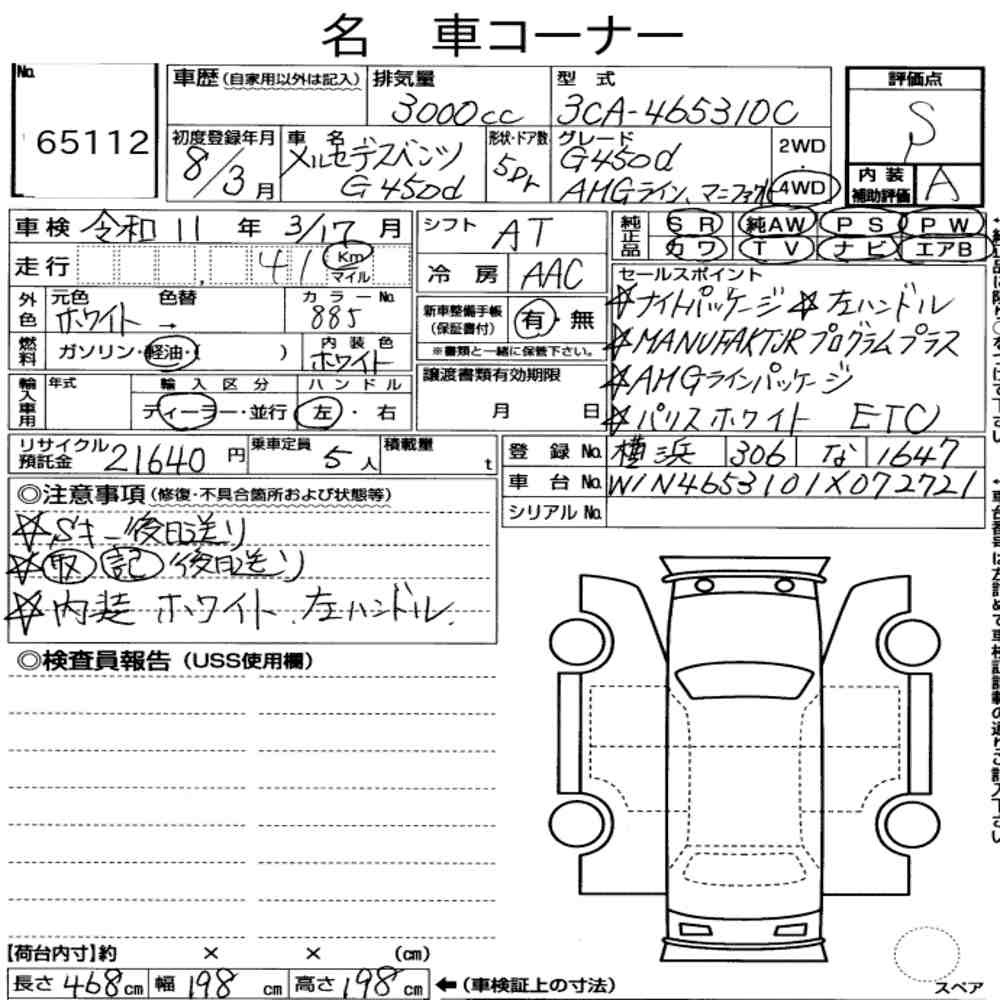 名 車コーナー
No. 65112
車歴 (自家用以外は記入)
排気量 3000cc
型式 3CA-465310C
評価点 S
初度登録年月 8/3月
車名 メルセデスベンツ G450d
形状・ドア数 5Dr
グレード G450d AMGライン、マニファク
2WD・4WD
内装補助評価 A
車検 令和 11年 3/17月
シフト AT
純正品 SR 純AW PS PW
カワ TV ナビ エアB
走行 41 Km マイル
冷房 AAC
セールスポイント
☆ナイトパッケージ ☆左ハンドル
☆MANUFAKTURプログラムプラス
☆AMGラインパッケージ
☆パリスホワイト ETC
外色 元色 ホワイト → 色替 カラーNo. 885
新車整備手帳(保証書付) 有・無
※書類と一緒に保管下さい。
燃料 ガソリン・軽油・( )
内装色 ホワイト
譲渡書類有効期限 月 日
輸入車用 年式 輸入区分 ディーラー・並行 ハンドル 左・右
リサイクル預託金 21640円
乗車定員 5人
積載量 t
登録No. 横浜 306 な 1647
車台No. W1N4653101X072721
シリアルNo.
◎注意事項 (修復・不具合箇所および状態等)
☆Sキー後日送り
☆取 記 後日送り
☆内装 ホワイト 左ハンドル.
◎検査員報告 (USS使用欄)
【荷台内寸】約 × × (cm)
長さ 468cm 幅 198cm 高さ 198cm ←(車検証上の寸法)
スペア